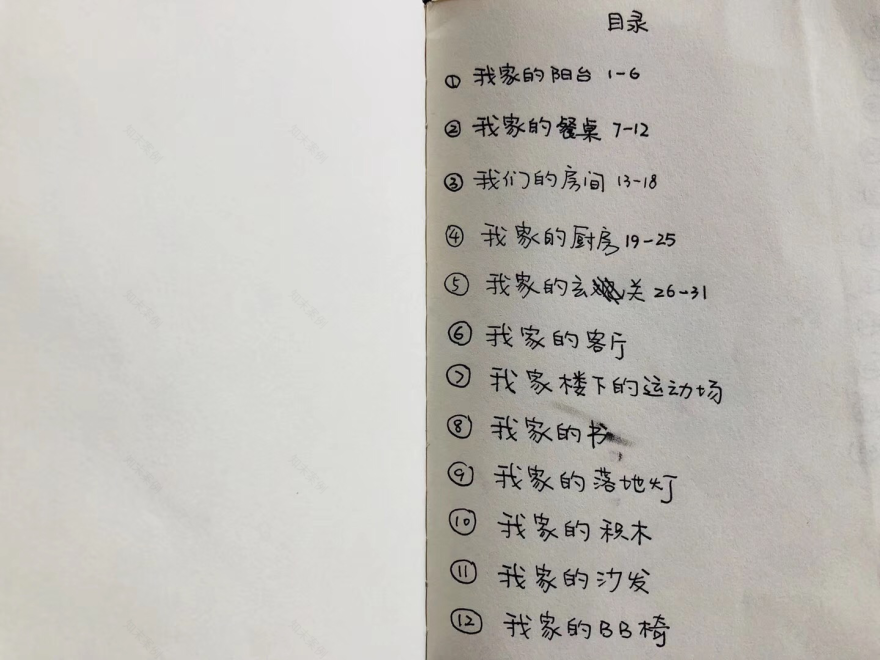 目录
① 我家的阳台 1-6
② 我家的餐桌 7-12
③ 我们的房间 13-18
④ 我家的厨房 19-25
⑤ 我家的玄关 26-31
⑥ 我家的客厅
⑦ 我家楼下的运动场
⑧ 我家的书
⑨ 我家的落地灯
⑩ 我家的积木
⑪ 我家的沙发
⑫ 我家的BB椅